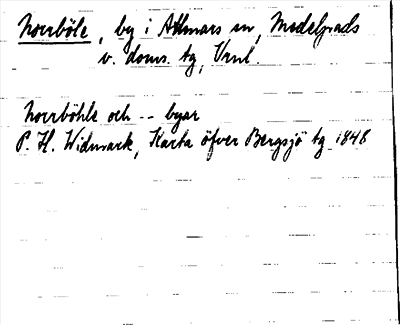 Norrböle, by i Attmars sn, Medelpads
v. doms. tg, Vrnl.
Norrböhle och -- byar
P. H. Widmark, Karta öfver Bergsjö tg 1848